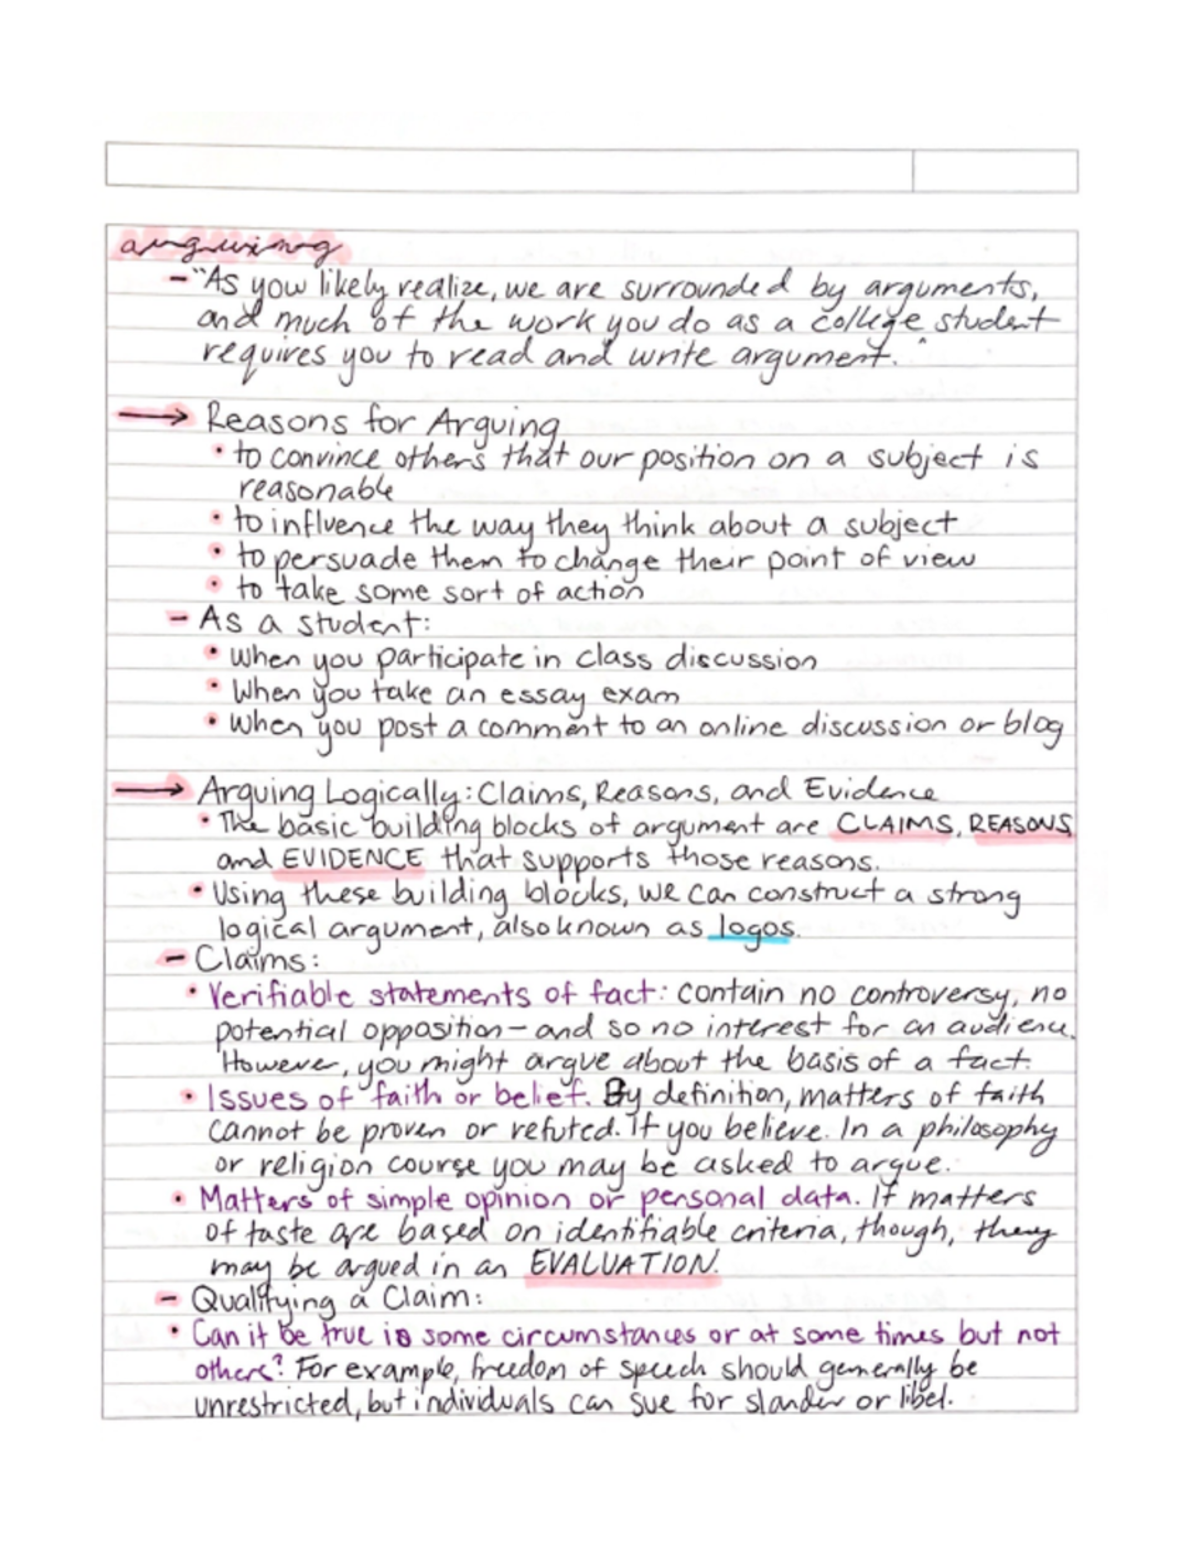 arguing
- "As you likely realize, we are surrounded by arguments,
and much of the work you do as a college student
requires you to read and write argument."
→ Reasons for Arguing
• to convince others that our position on a subject is
reasonable
• to influence the way they think about a subject
• to persuade them to change their point of view
• to take some sort of action
- As a student:
• When you participate in class discussion
• When you take an essay exam
• When you post a comment to an online discussion or blog
→ Arguing Logically: Claims, Reasons, and Evidence
• The basic building blocks of argument are CLAIMS, REASONS
and EVIDENCE that supports those reasons.
• Using these building blocks, we can construct a strong
logical argument, also known as logos.
- Claims:
• Verifiable statements of fact: contain no controversy, no
potential opposition - and so no interest for an audience.
However, you might argue about the basis of a fact.
• Issues of faith or belief. By definition, matters of faith
cannot be proven or refuted. If you believe. In a philosophy
or religion course you may be asked to argue.
• Matters of simple opinion or personal data. If matters
of taste are based on identifiable criteria, though, they
may be argued in an EVALUATION.
- Qualifying a Claim:
• Can it be true is some circumstances or at some times but not
others? For example, freedom of speech should generally be
unrestricted, but individuals can sue for slander or libel.